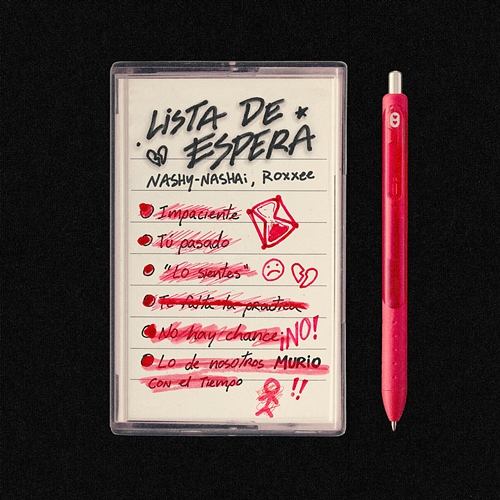 LISTA DE
ESPERA
NASHY-NASHAi, Roxxee
Impaciente
Tú pasado
"Lo sientos"
Te falta la practica
No hay chance ¡NO!
Lo de nosotros MURIO
con el Tiempo !!